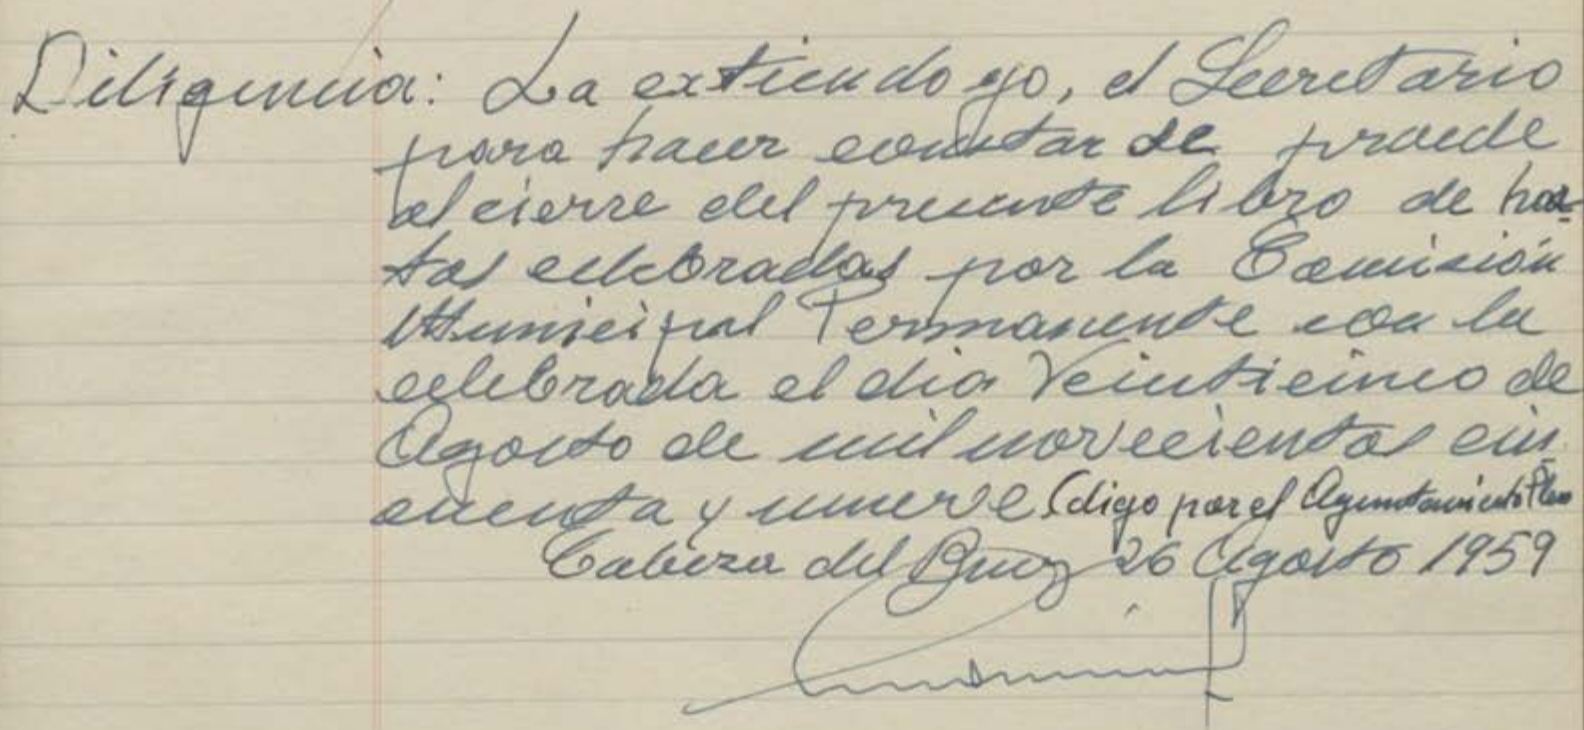 Diligencia: La extiendo yo, el Secretario
para hacer constar se procede
al cierre del presente libro de has-
tas celebradas por la Comisión
Municipal Permanente con la
celebrada el dia Veinticinco de
Agosto de mil novecientos cin-
cuenta y nueve (digo por el Ayuntamiento Pleno
Cabeza del Buey 26 Agosto 1959